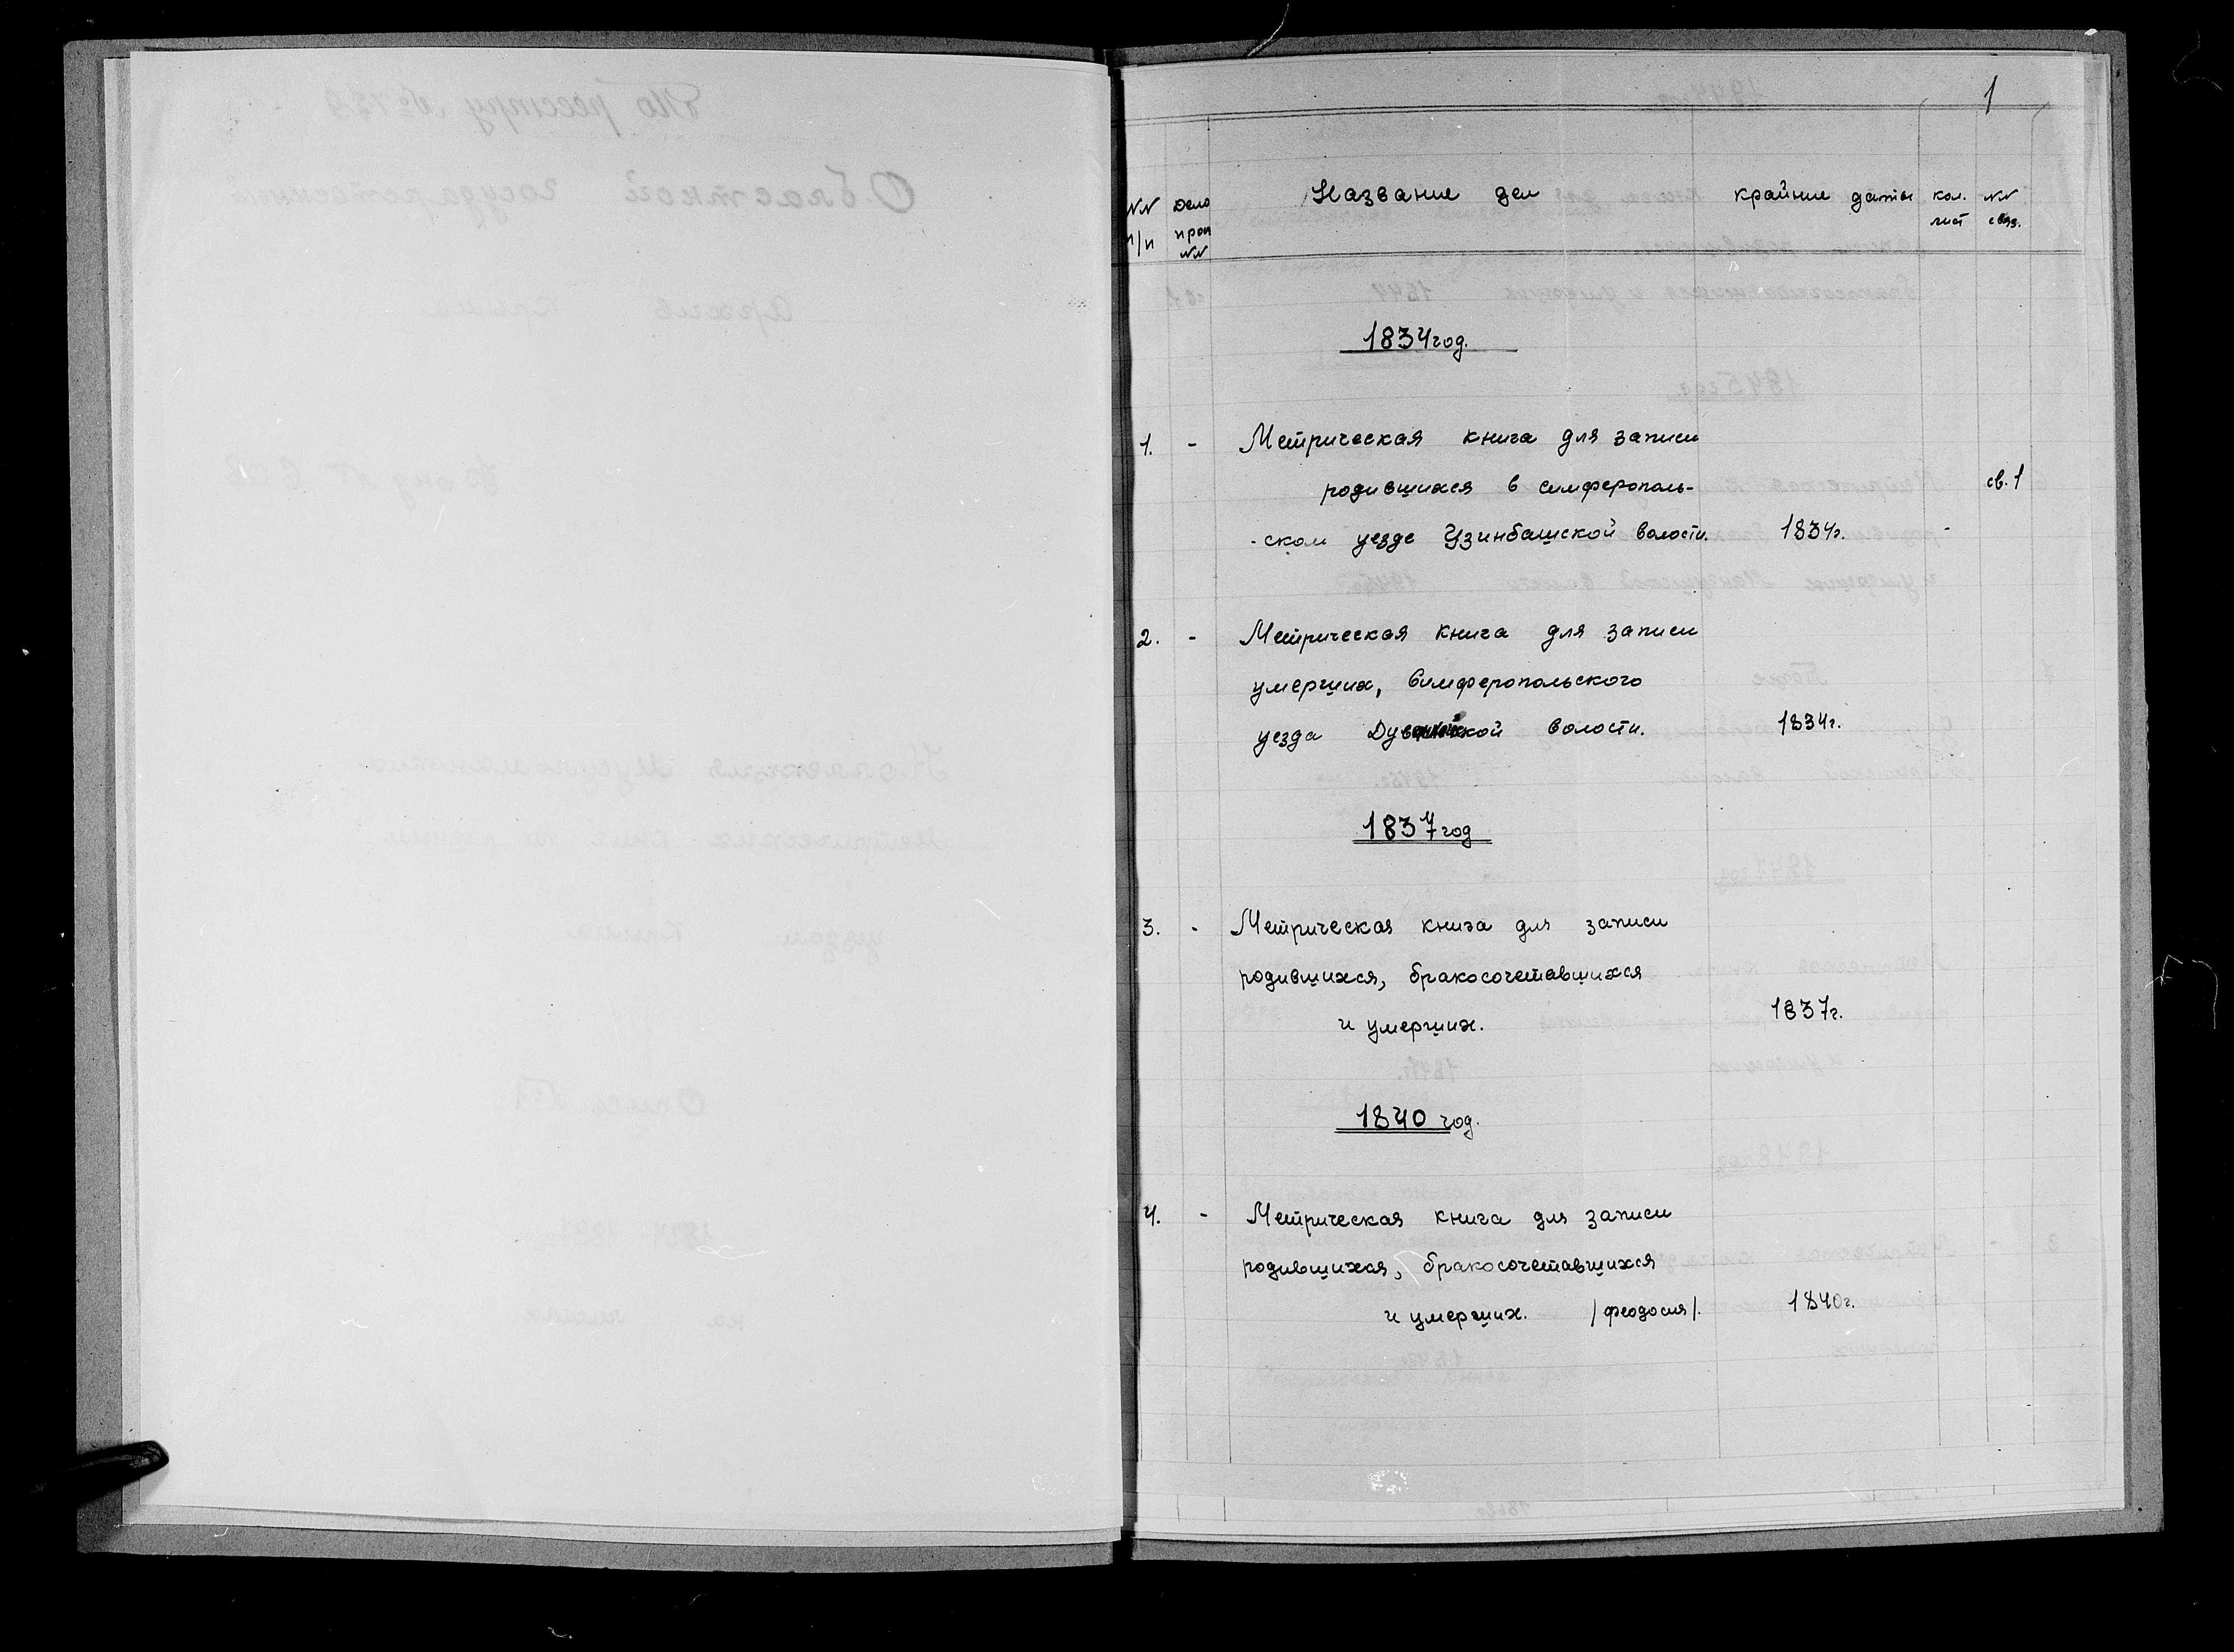 1
NN п/п
Дело прои NN
Название дел
крайние даты
кол. лист
NN связ.
1834 год.
1. - Метрическая книга для записи
родившихся в симферополь- св. 1
-ском уезде Узинбашской волости. 1834г. -
2. - Метрическая книга для записи
умерших, Симферопольского
уезда волости. 1834г.
1837 год
3. - Метрическая книга для записи
родившихся, бракосочетавшихся
и умерших. 1837г.
1840 год.
4. - Метрическая книга для записи
родившихся, бракосочетавшихся
и умерших. /феодосия/. 1840г.